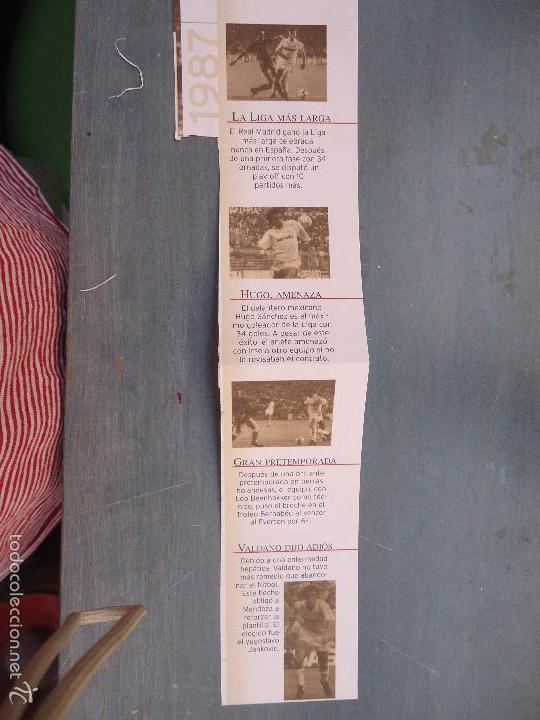 1987
LA LIGA MÁS LARGA
El Real Madrid ganó la Liga
más larga celebrada
nunca en España. Después
de una primera fase con 34
jornadas, se disputó un
play-off con 10
partidos más.
HUGO, AMENAZA
El delantero mexicano
Hugo Sánchez es el máxi-
mo goleador de la Liga con
34 goles. A pesar de este
éxito, el ariete amenazó
con irse a otro equipo si no
le revisaban el contrato.
GRAN PRETEMPORADA
Después de una brillante
pretemporada en tierras
holandesas, el equipo, con
Leo Beenhakker como téc-
nico, puso el broche en el
Trofeo Bernabéu al vencer
al Everton por 6-1.
VALDANO DIJO ADIÓS
Debido a una enfermedad
hepática, Valdano no tuvo
más remedio que abando-
nar el fútbol.
Este hecho
obligó a
Mendoza a
reforzar la
plantilla. El
elegido fue
el yugoslavo
Jankovic.
todocoleccion.net